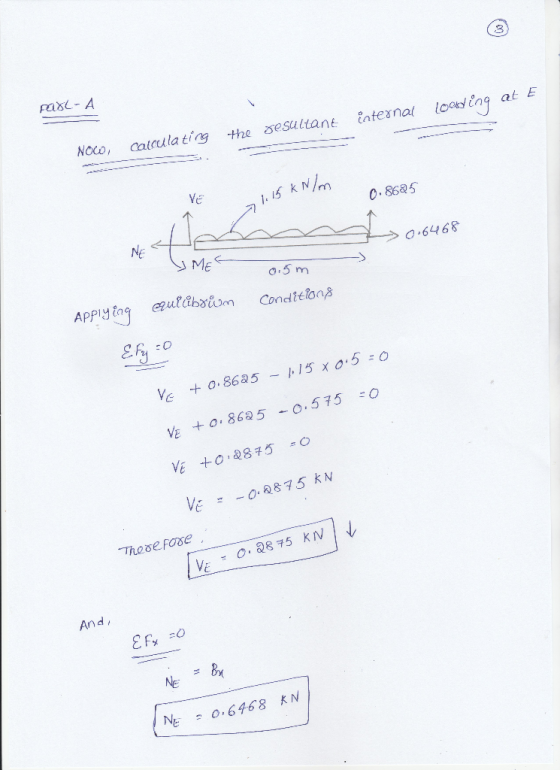 3
Part-A
Now, calculating the resultant internal loading at E
VE
1.15 kN/m
0.8625
NE
0.6468
ME
0.5 m
Applying equilibrium conditions
ΣFy =0
VE + 0.8625 - 1.15 x 0.5 = 0
VE + 0.8625 - 0.575 = 0
VE + 0.2875 = 0
VE = -0.2875 KN
Therefore.
VE = 0.2875 KN ↓
And,
ΣFx =0
NE = Bx
NE = 0.6468 KN